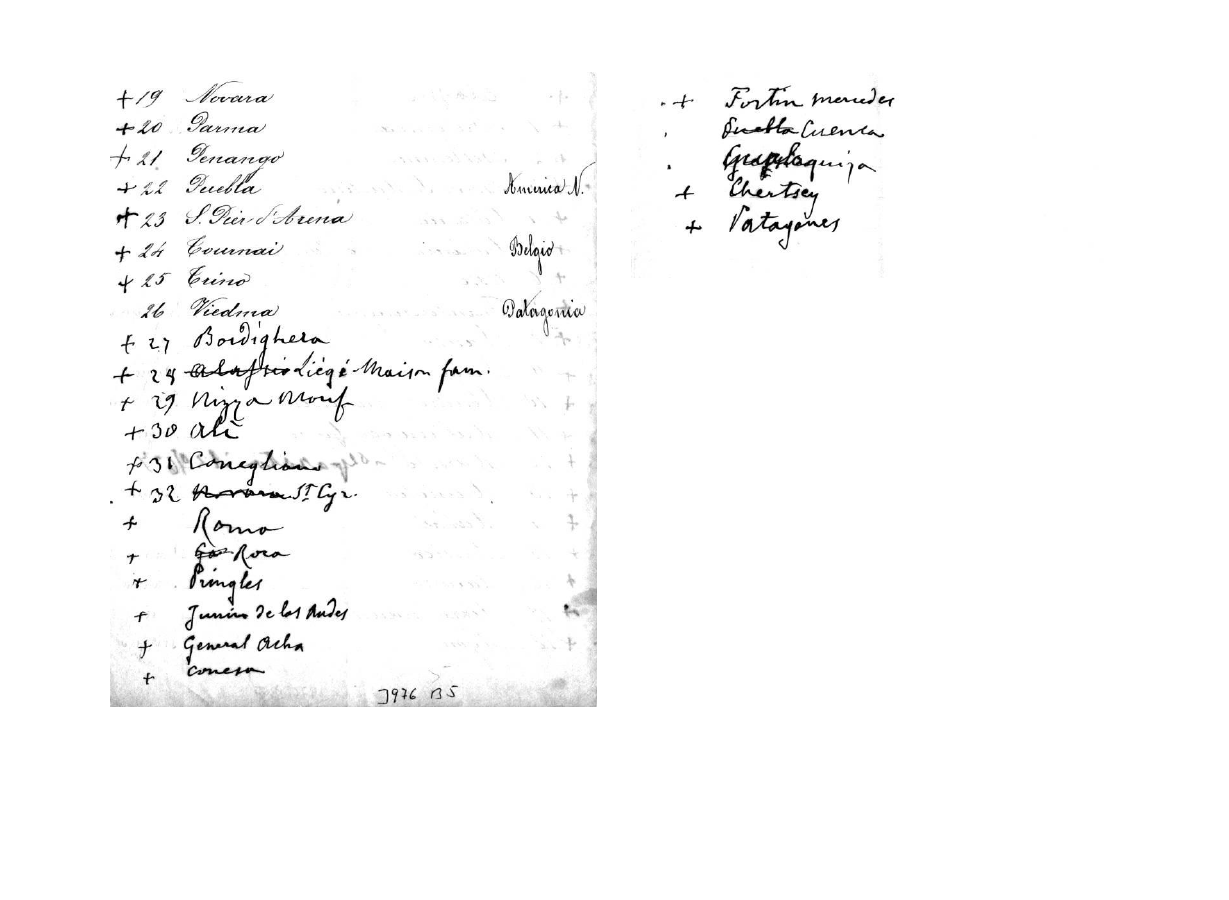 + 19 Novara
+ 20 Parma
+ 21 Penango
+ 22 Puebla America N.
+ 23 S. Pier d'Arena
+ 24 Tournai Belgio
+ 25 Trino
26 Viedma Patagonia
+ 27 Bordighera
+ 28 Liégé Maison fam.
+ 29 Nizza Monf
+ 30 Alì
+ 31 Conegliano
+ 32 Novara St Cyr.
+ Roma
+ Roca
+ Pringles
+ Junin de los Andes
+ General Acha
+ Conesa
J976 B5
+ Fortin Mercedes
Puebla Cuenca
+ Chertsey
+ Patagones